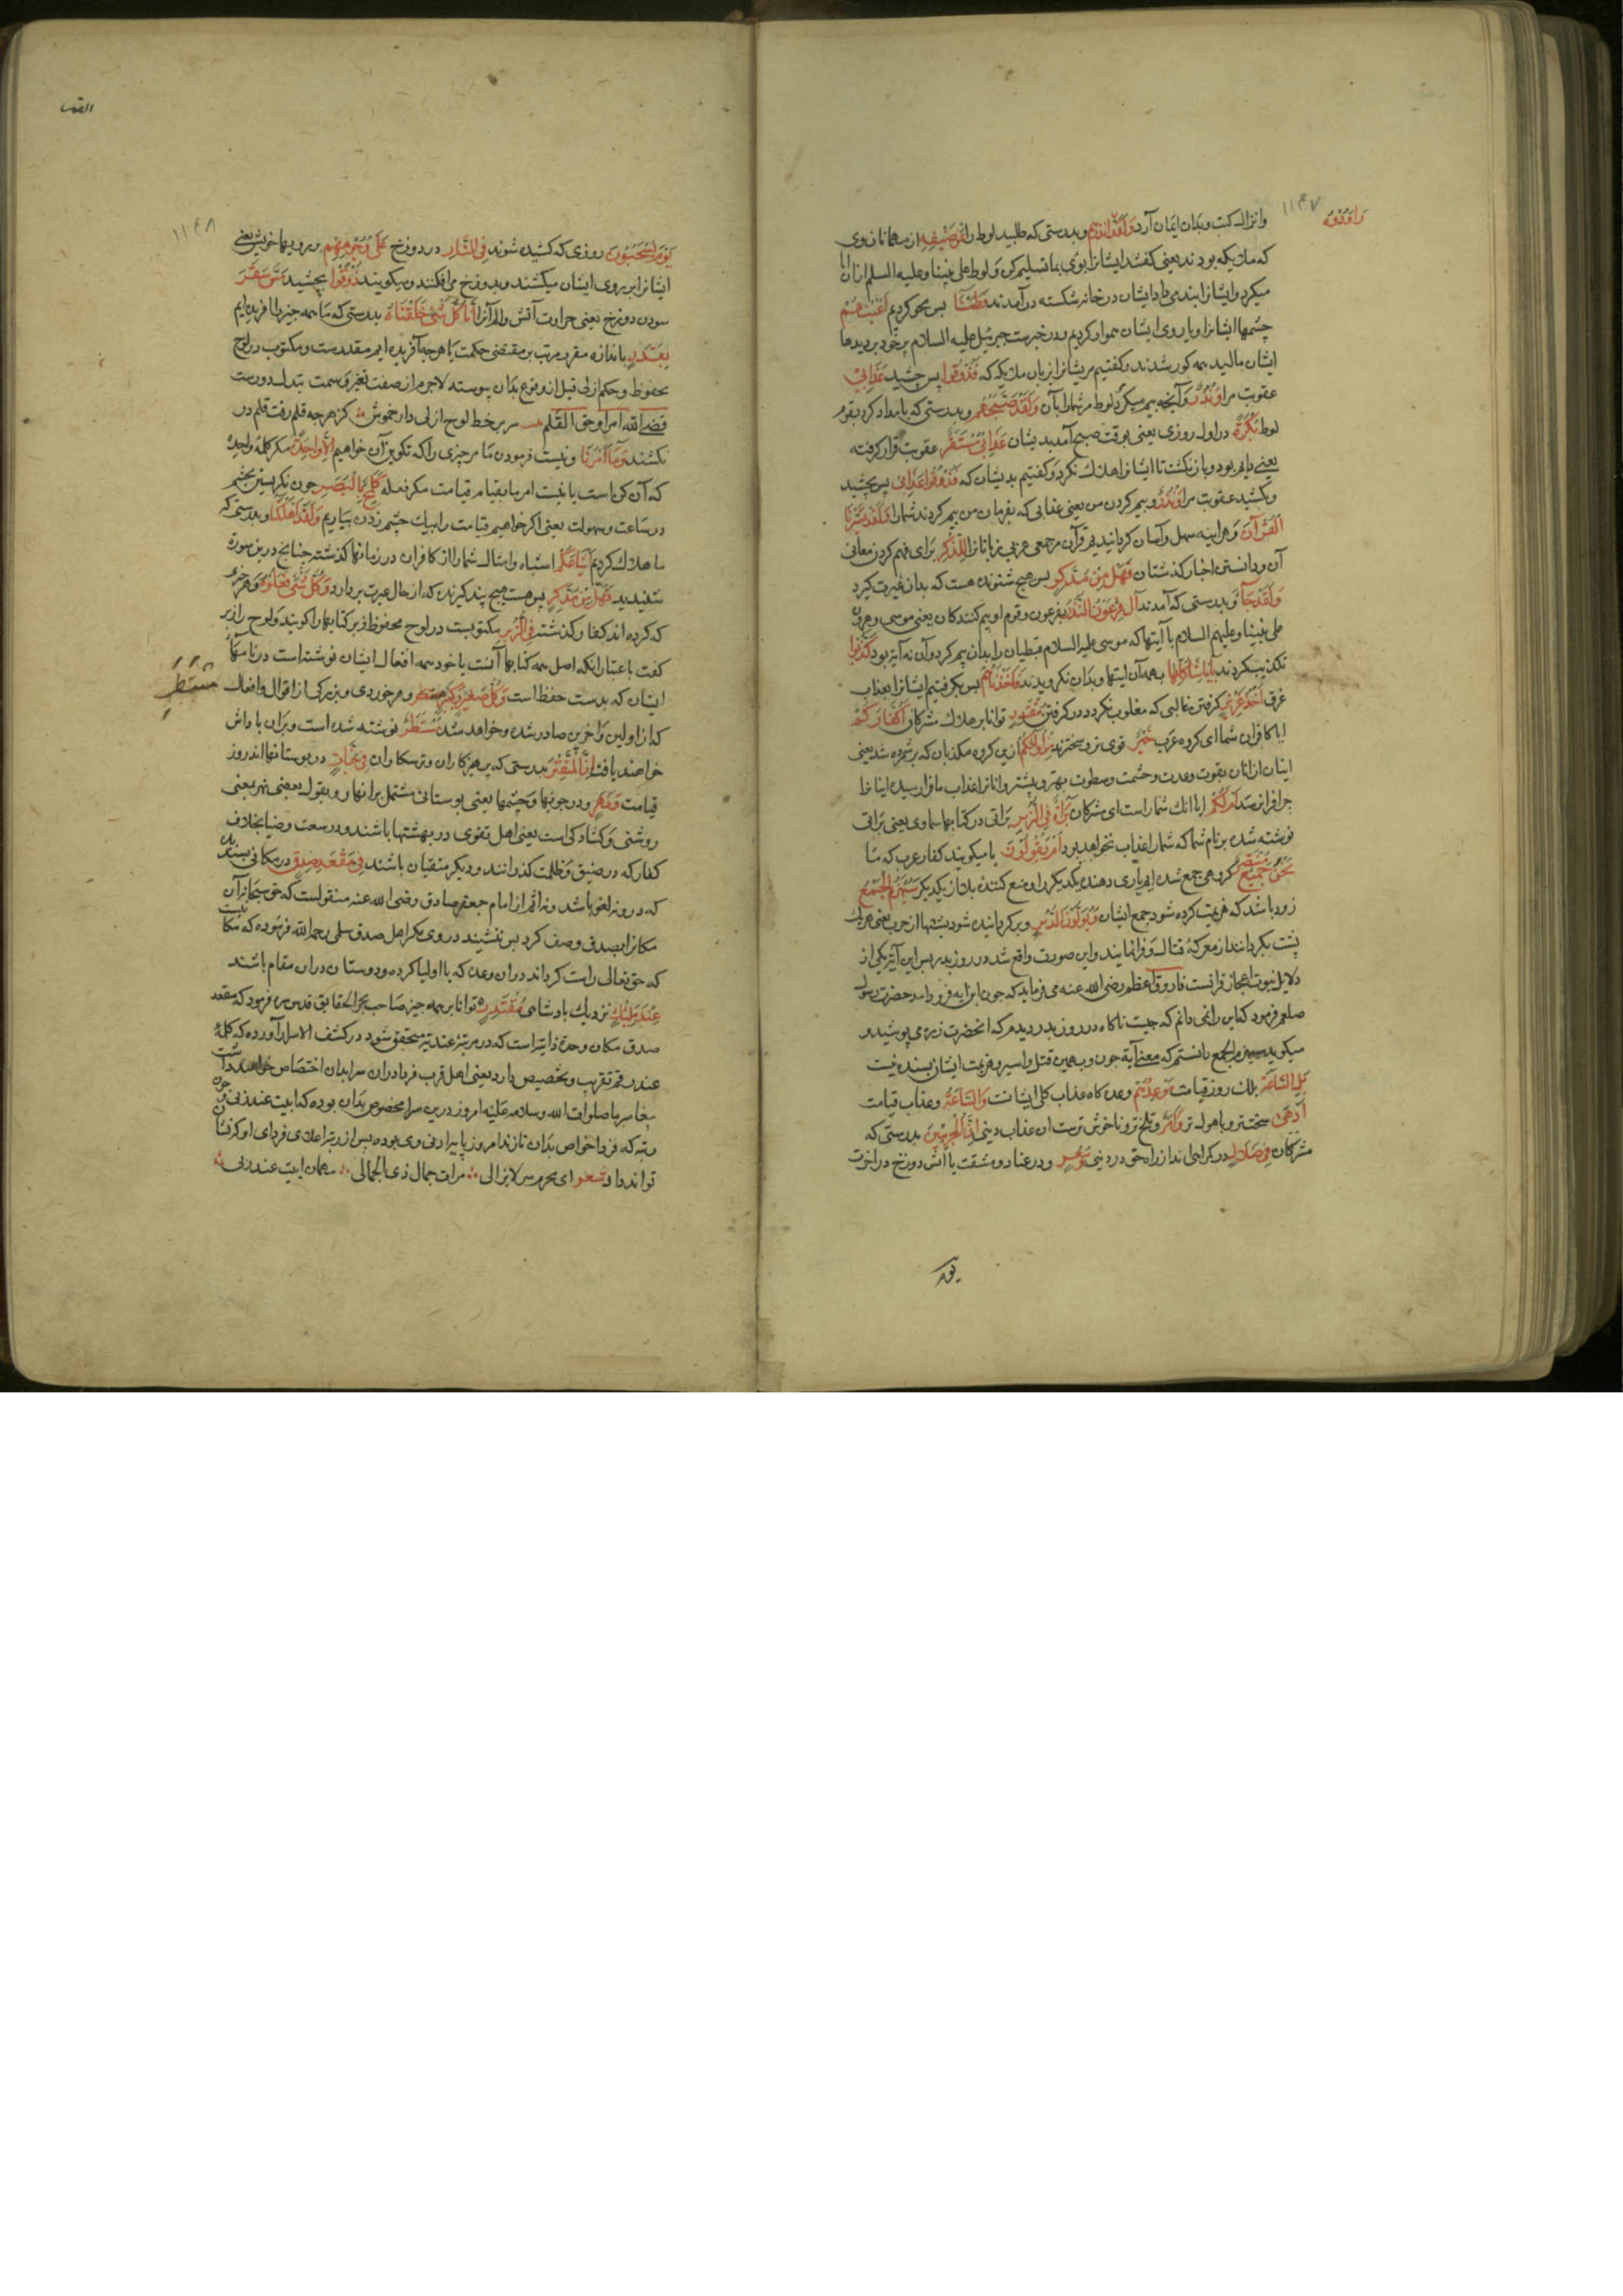 ۱۱۴۷
وانزال کتب وبدان ایمان آرد وَلَقَدْ رَاوَدُوهُ وبدرستی که طلبید لوط را عَن ضَیْفِهِ از مهمانان وی
که ملائیکه بودند یعنی کفتند ایشانرا بوی بما تسلیم کن ولوط علی نبینا وعلیه السلم ازان ابا
میکرد وایشانرا پند می داد ایشان در خانه شکسته درآمدند فَطَمَسْنَا پس محو کردیم اَعْیُنَهُمْ
چشمها ایشانرا وبا روی ایشان هموار کردیم ودر خبرست جبرئیل علیه السلام پر خود بر دیدها
ایشان مالید همه کور شدند وکفتیم مر یشانرا بزبان ملائیکه که فَذُوقُوا پس چشید عَذَابِی
عقوبت مرا وَنُذُرِ وآنچه بیم میکرد لوط مر شمارا بآن وَلَقَدْ صَبَّحَهُمْ وبدرستی که بامداد کرد بقوم
لوط بُکْرَةً در اول روزی یعنی بوقت صبح آمد بدیشان عَذَابٌ مُسْتَقِرٌّ عقوبت قرار کرفته
یعنی دایم بود وباز نکشت تا ایشانرا هلاک نکرد وکفتیم بدیشان که فَذُوقُوا عَذَابِی پس بچشید
وبکشید عقوبت مرا وَنُذُرِ وبیم کردن من یعنی عذابی که بفرمان من بیم کردند شمارا وَلَقَدْ یَسَّرْنَا
الْقُرْآنَ وهر اینه سهل وآسان کردانیدیم قرآن مر جمعی عربی زبانانرا لِلذِّکْرِ برای فهم کردن معانی
آن ودانستن اخبار کذشتکان فَهَلْ مِنْ مُدَّکِرٍ پس هیچ شنونده هست که بدان عبرت کیرد
وَلَقَدْ جَآءَ وبدرستی که آمدند آلَ فِرْعَوْنَ النُّذُرُ بفرعون وقوم او بیم کنندکان یعنی موسی وهرون
علی نبینا وعلیهم السلام با آیتها که موسی علیه السلام قبطیان را بدان بیم کرد وآن نه آیة بود کَذَّبُوا
تکذیب کردند بِآیَاتِنَا کُلِّهَا بهمه آن ایتها وبدان نکرویدند فَاَخَذْنَاهُمْ پس بکرفتیم ایشانرا بعذاب
غرق اَخْذَ عَزِیزٍ کرفتن غالبی که مغلوب نکردد در کرفتن مُقْتَدِرٍ توانا بر هلاک مشرکان اَکُفَّارُکُمْ
ایا کافران شما ای کروه عرب خَیْرٌ قوی تر وسختر ند مِنْ اُولٰئِکُمْ ازین کروه مکذبان که بر شمرده شد یعنی
اینان از انان بقوت وعدت وحشمت وسطوت بهتر وبیشتر وانانرا عذاب ما فرا رسید اینانرا
چرا فرا نرسد اَمْ لَکُمْ ایا انک شمار است ای مشرکان بَرَآءَةٌ فِی الزُّبُرِ براتی در کتابهاء سماوی یعنی براتی
نوشته شده بر نام شما که شمارا عذاب نخواهد بود اَمْ یَقُولُونَ یا میکویند کفار عرب که ما
نَحْنُ جَمِیعٌ مُنْتَصِرٌ کروهی جمع شده ایم یاری دهنده یکدیکر را ومنع کنندهٔ بلا از یکدیکر سَیُهْزَمُ الْجَمْعُ
زود باشد که هزیمت کرده شود جمع ایشان وَیُوَلُّونَ الدُّبُرَ وبر کردانیده شود پشتها از حرب یعنی هر یک
پشت بکردانند از معرکهٔ قتال وفرار نمایند واین صورت واقع شد در روز بدر پس این آیت یکی از
دلایل نبوت اعجاز قرانست فاروق اعظم رضی الله عنه می فرماید که چون این ایه فرود امد حضرت رسول
صلعم فرمود که این را نمی دانم که چیست ناکاه در روز بدر دیدم که انحضرت زره می پوشید و
میکوید سیهزم الجمع دانستم که معنی آیة چون وهمین قتل واسیر وهزیمت ایشان بسنده نیست
بَلِ السَّاعَةُ بلک روز قیامت مَوْعِدُهُمْ وعده کاه عذاب کلی ایشانست وَالسَّاعَةُ وعذاب قیامت
اَدْهٰی سخت تر وبا هول تر وَاَمَرُّ وتلخ تر وناخوش ترست از عذاب دینی اِنَّ الْمُجْرِمِینَ بدرستی که
مشرکان فِی ضَلَالٍ در کمراهی اند از راه حق در دینی وَسُعُرٍ ودر عناد ومشقت یا آتش دوزخ در اخرت
راوَدُوهُ
یوم
۱۱۴۸
یَوْمَ یُسْحَبُونَ روزی که کشیده شوند فِی النَّارِ در دوزخ عَلٰی وُجُوهِهِمْ بر رویهاء خویش یعنی
ایشانرا بر روی ایشان میکشند وبدوزخ می افکنند ومیکویند ذُوقُوا بچشید مَسَّ سَقَرَ
سودن دوزخ یعنی حرارت آتش والم آنرا اِنَّا کُلَّ شَیْءٍ خَلَقْنَاهُ بدرستی که ما همه چیز را افریده ایم
بِقَدَرٍ باندازه مقرر مرتب بر مقتضی حکمت یا هرچه آفریده ایم مقدرست ومکتوب در لوح
محفوظ وحکم ازلی قبل از وقوع بدان پیوسته لاجرم از صفت تغیر وسمت تبدل دورست
قضی الله امرا وجف القلم سر بر خط لوح ازلی دار خموش کز هر چه قلم رفت قلم در
نکشند وَمَآ اَمْرُنَآ ونیست فرمودن ما مر چیزی را که تکوین آن خواهیم اِلَّا وَاحِدَةٌ مکر کلمهٔ واحدهٔ
که آن کن است یا نیست امر ما بقیام قیامت مکر فعلهٔ کَلَمْحٍ بِالْبَصَرِ چون نکریستن بچشم
در ساعت وسهولت یعنی اکر خواهیم قیامت را بیک چشم زدن بیاریم وَلَقَدْ اَهْلَکْنَا وبدرستی که
ما هلاک کردیم اَشْیَاعَکُمْ اشباه وامثال شمارا از کافران در زمانهاء کذشته چنانچ درین سورة
شنیدید فَهَلْ مِنْ مُدَّکِرٍ پس هست هیچ پند کیرنده که از حال عبرت بر دارد وَکُلُّ شَیْءٍ فَعَلُوهُ وهر چیزی
که کرده اند کفار کذشته فِی الزُّبُرِ مکتوبست در لوح محفوظ وزبر کتابها را کویند ولوح را زبر
کفت باعتبار انکه اصل همه کتابها آنست یا خود همه افعال ایشان نوشته است در نامهاء
ایشان که بدست حفظه است وَکُلُّ صَغِیرٍ وَکَبِیرٍ وهر خوردی وبزرکی از اقوال وافعال
که از اولین واخرین صادر شده وخواهد شد مُسْتَطَرٌ نوشته شده است وبران پاداش
خواهند یافت اِنَّ الْمُتَّقِینَ بدرستی که پرهیزکاران وترسکاران فِی جَنَّاتٍ در بوستانها اند روز
قیامت وَنَهَرٍ ودر جویها وچشمها یعنی بوستانی مشتمل بر انهار وبقول بعضی نهر بمعنی
روشنی وکشادکی است یعنی اهل تقوی در بهشتها باشند ودر سعت وضیا بخلاف
کفار که در ضیق وظلمت کذرانند ودیکر متقیان باشند فِی مَقْعَدِ صِدْقٍ در مکانی پسندیده
که در و نه لغو باشد ونه اثم از امام جعفر صادق رضی الله عنه منقولست که حق سبحانه آن
مکانرا بصدق وصف کرد پس ننشیند در وی مکر اهل صدق سلمی رحمه الله فرموده که مکانیست
که حق تعالی راست کرداند دران وعده که با اولیا کرده ودوستان دران مقام باشند
عِنْدَ مَلِیکٍ نزدیک بادشاهی مُقْتَدِرٍ توانا بر همه چیز صاحب بحر الحقایق قدس سره فرمود که مقعد
صدق مکان وحدة ذاتیه است که در مرتبهٔ عندیة متحقق شود در کشف الاسرار آورده که کلمهٔ
عند رقم تقریب وتخصیص دارد یعنی اهل قرب فردا دران سرا بدان اختصاص خواهند داشت
پیغامبر ما صلوات الله وسلامه علیه امروز درین سرا مخصوص بدان بوده که ابیت عند ربی چون
رتبه که فردا خواص بدان نازند امروز پایهٔ ادنی وی بوده پس از رتبهٔ اعلای فردای او که نشان
تواند داد شعر ای محرم سر لایزالی مرات جمال ذی الجلالی مهمان ابیت عند ربی
مُسْتَطَرٌ